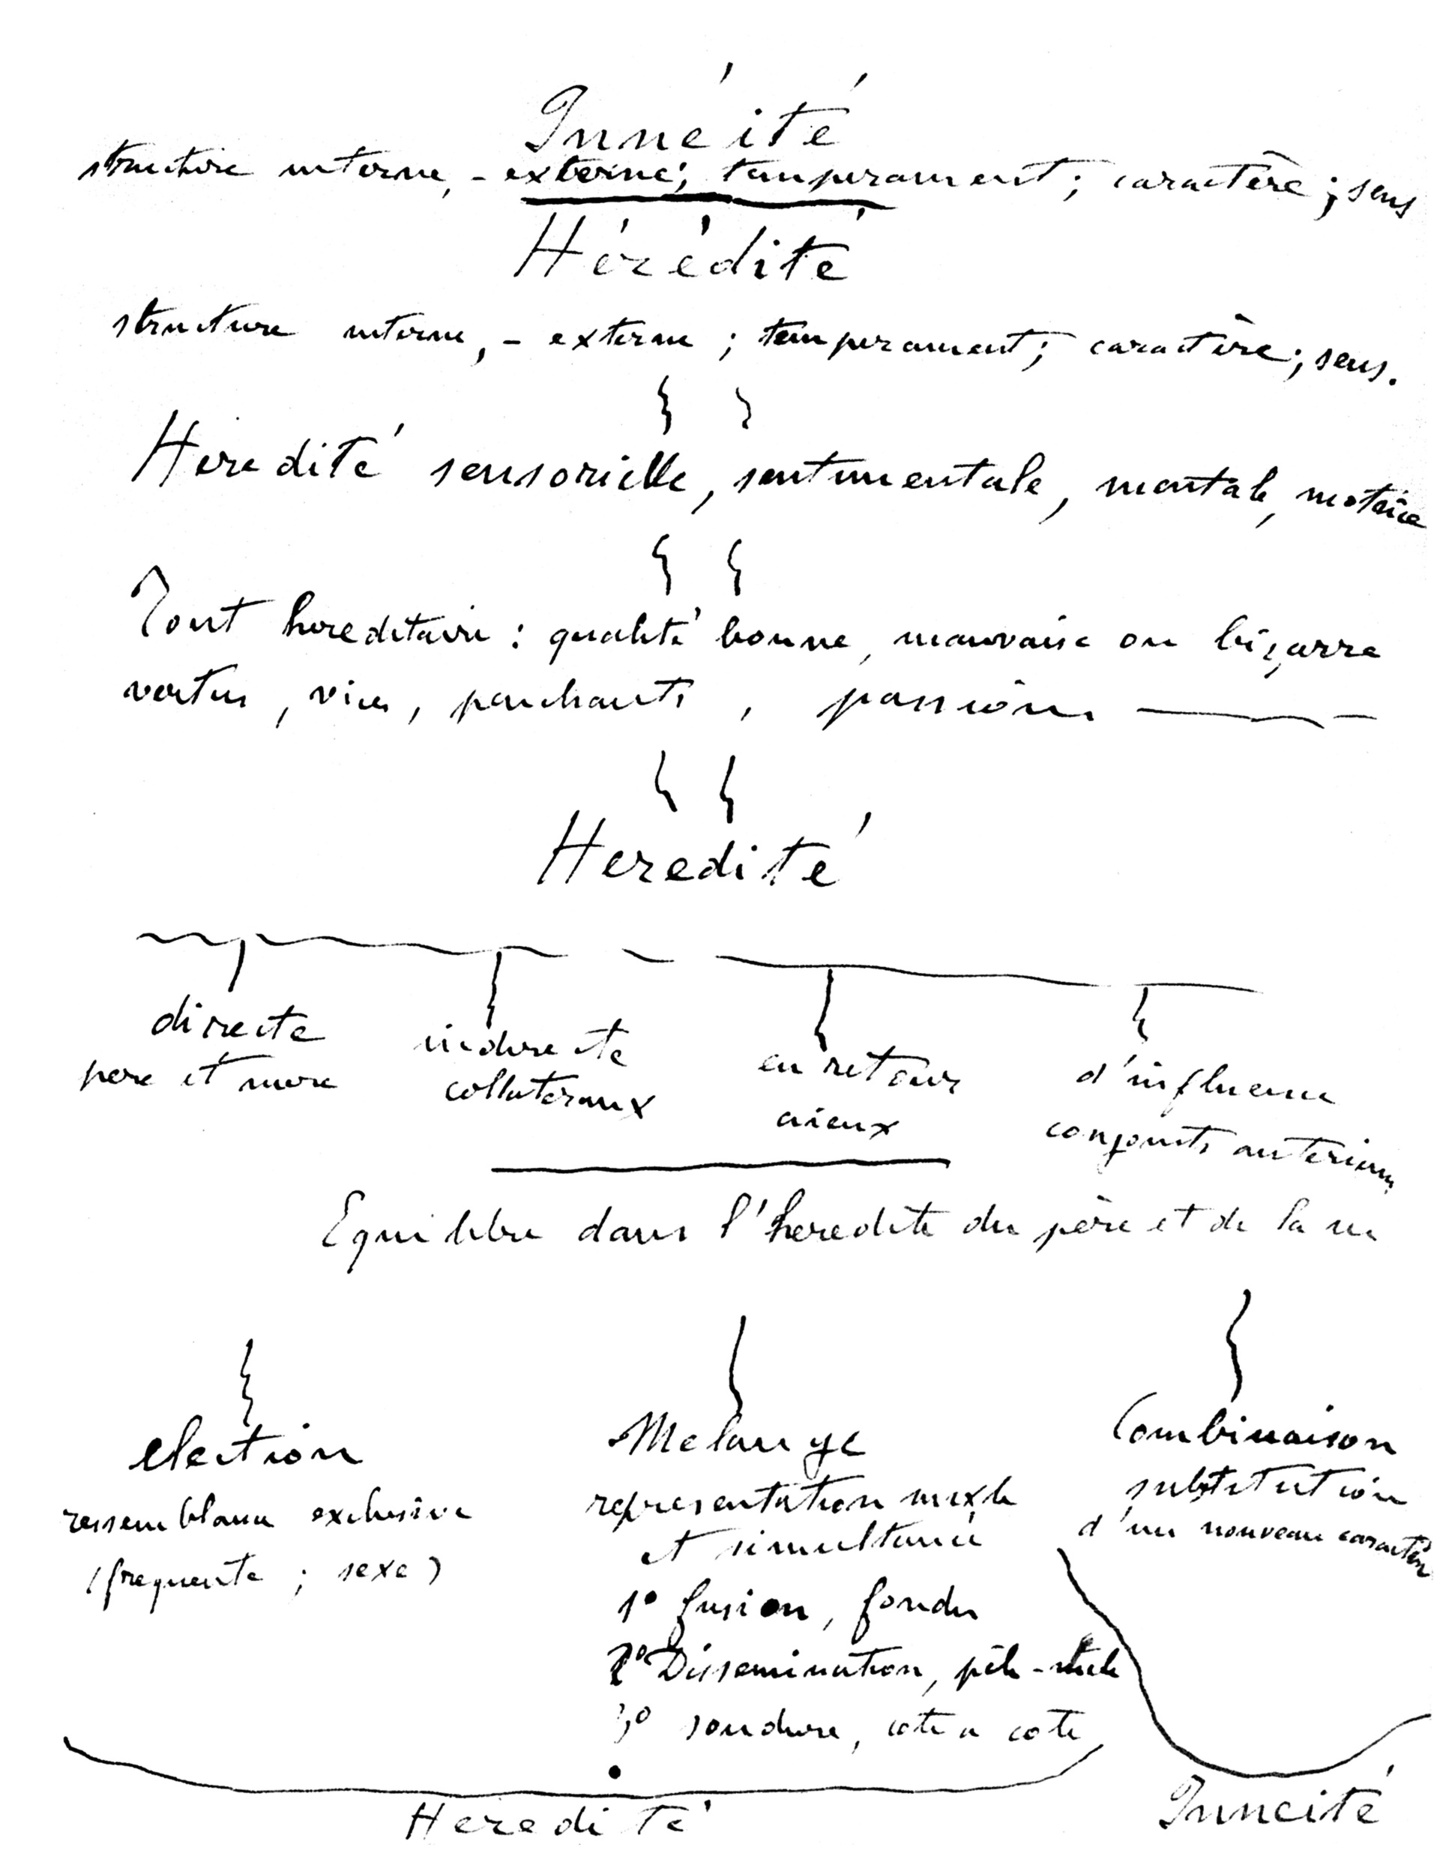 Innéité
structure interne, - externe; temperament; caractère; sens
Hérédité
structure interne, - externe; temperament; caractère; sens.
Heredité sensorielle, sentimentale, mentale, motrice
Tout hereditaire : qualité bonne, mauvaise ou bizarre
vertus, vices, penchants, passions
Heredité
directe
pere et mere
indirecte
collateraux
en retour
aieux
d'influence
conjoints anterieurs
Equilibre dans l'heredite du père et de la m
election
ressemblance exclusive
(frequente ; sexe)
Melange
representation mixte
et simultané
1° fusion, fondu
2° Dissemination, pêle-mele
3° soudure, cote a cote
Combinaison
substitution
d'un nouveau caractère
Heredité
Innéité